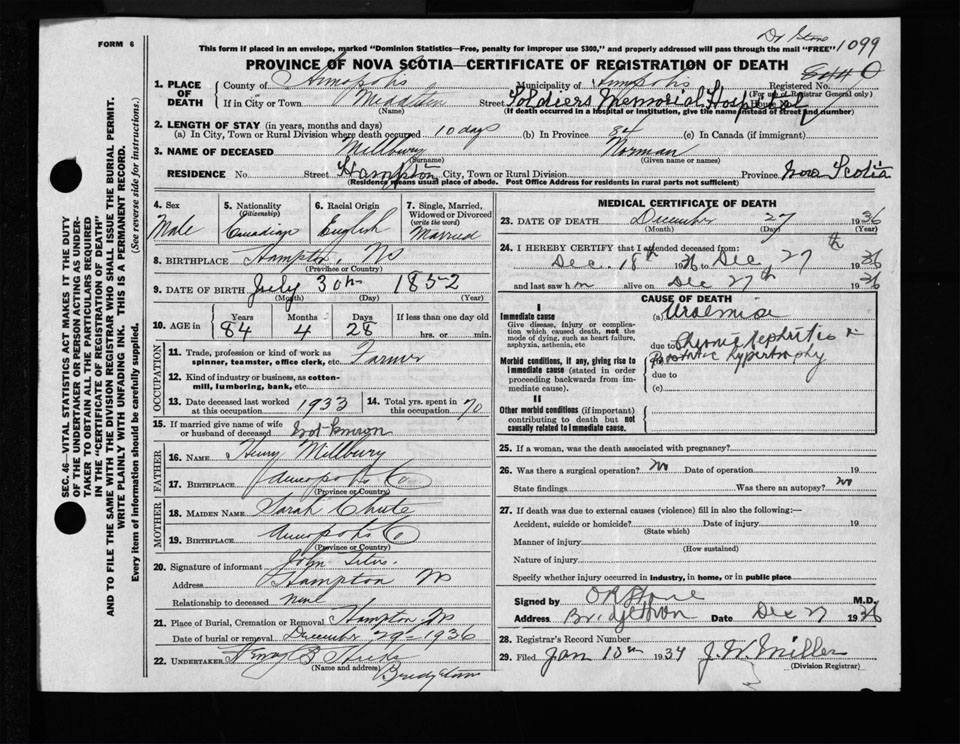 FORM 6
Dr Stone
This form if placed in an envelope, marked "Dominion Statistics—Free, penalty for improper use $300," and properly addressed will pass through the mail "FREE" 1099
PROVINCE OF NOVA SCOTIA—CERTIFICATE OF REGISTRATION OF DEATH
1. PLACE OF DEATH County of Annapolis Municipality of Annapolis Registered No. (For use of Registrar General only)
If in City or Town Middleton (Name) Street Soldiers Memorial Hospital House No.
(If death occurred in a hospital or institution, give the name instead of street and number)
2. LENGTH OF STAY (in years, months and days)
(a) In City, Town or Rural Division where death occurred 10 days (b) In Province 84 (c) In Canada (if immigrant)
3. NAME OF DECEASED Millbury (Surname) Norman (Given name or names)
RESIDENCE No. Street Hampton City, Town or Rural Division Province Nova Scotia
(Residence means usual place of abode. Post Office Address for residents in rural parts not sufficient)
4. Sex Male
5. Nationality (Citizenship) Canadian
6. Racial Origin English
7. Single, Married, Widowed or Divorced (write the word) Married
8. BIRTHPLACE Hampton, NS
(Province or Country)
9. DATE OF BIRTH July 30th 1852
(Month) (Day) (Year)
10. AGE in Years 84 Months 4 Days 28 If less than one day old hrs. or min.
OCCUPATION
11. Trade, profession or kind of work as spinner, teamster, office clerk, etc. Farmer
12. Kind of industry or business, as cotton-mill, lumbering, bank, etc.
13. Date deceased last worked at this occupation 1933 14. Total yrs. spent in this occupation 70
15. If married give name of wife or husband of deceased Not known
FATHER
16. NAME Henry Millbury
17. BIRTHPLACE Annapolis Co
(Province or Country)
MOTHER
18. MAIDEN NAME Sarah Chute
19. BIRTHPLACE Annapolis Co
(Province or Country)
20. Signature of informant John Titus.
Address Hampton NS
Relationship to deceased
21. Place of Burial, Cremation or Removal Hampton NS
Date of burial or removal December 29 1936
22. UNDERTAKER
(Name and address) Bridgetown
MEDICAL CERTIFICATE OF DEATH
23. DATE OF DEATH December 27 1936
(Month) (Day) (Year)
24. I HEREBY CERTIFY that I attended deceased from:
Dec. 18th 1936 to Dec 27th 1936
and last saw him alive on Dec 27th 1936
CAUSE OF DEATH
I
Immediate cause
Give disease, injury or complication which caused death, not the mode of dying, such as heart failure, asphyxia, asthenia, etc
(a) Uraemia
due to Chronic Nephritis &
Morbid conditions, if any, giving rise to immediate cause (stated in order proceeding backwards from immediate cause).
Prostatic hypertrophy
due to
(c)
II
Other morbid conditions (if important) contributing to death but not causally related to immediate cause.
25. If a woman, was the death associated with pregnancy?
26. Was there a surgical operation? no Date of operation 19
State findings Was there an autopsy? no
27. If death was due to external causes (violence) fill in also the following:—
Accident, suicide or homicide? Date of injury 19
(State which)
Manner of injury
(How sustained)
Nature of injury
Specify whether injury occurred in industry, in home, or in public place
Signed by M.D.
Address Bridgetown Date Dec 27 1936
28. Registrar's Record Number
29. Filed Jan 10th 1937 J. W. Miller
(Division Registrar)
SEC. 46—VITAL STATISTICS ACT MAKES IT THE DUTY
OF THE UNDERTAKER OR PERSON ACTING AS UNDER-
TAKER TO OBTAIN ALL THE PARTICULARS REQUIRED
IN THE "CERTIFICATE OF REGISTRATION OF DEATH"
AND TO FILE THE SAME WITH THE DIVISION REGISTRAR WHO SHALL ISSUE THE BURIAL PERMIT.
WRITE PLAINLY WITH UNFADING INK. THIS IS A PERMANENT RECORD.
Every item of information should be carefully supplied. (See reverse side for instructions.)